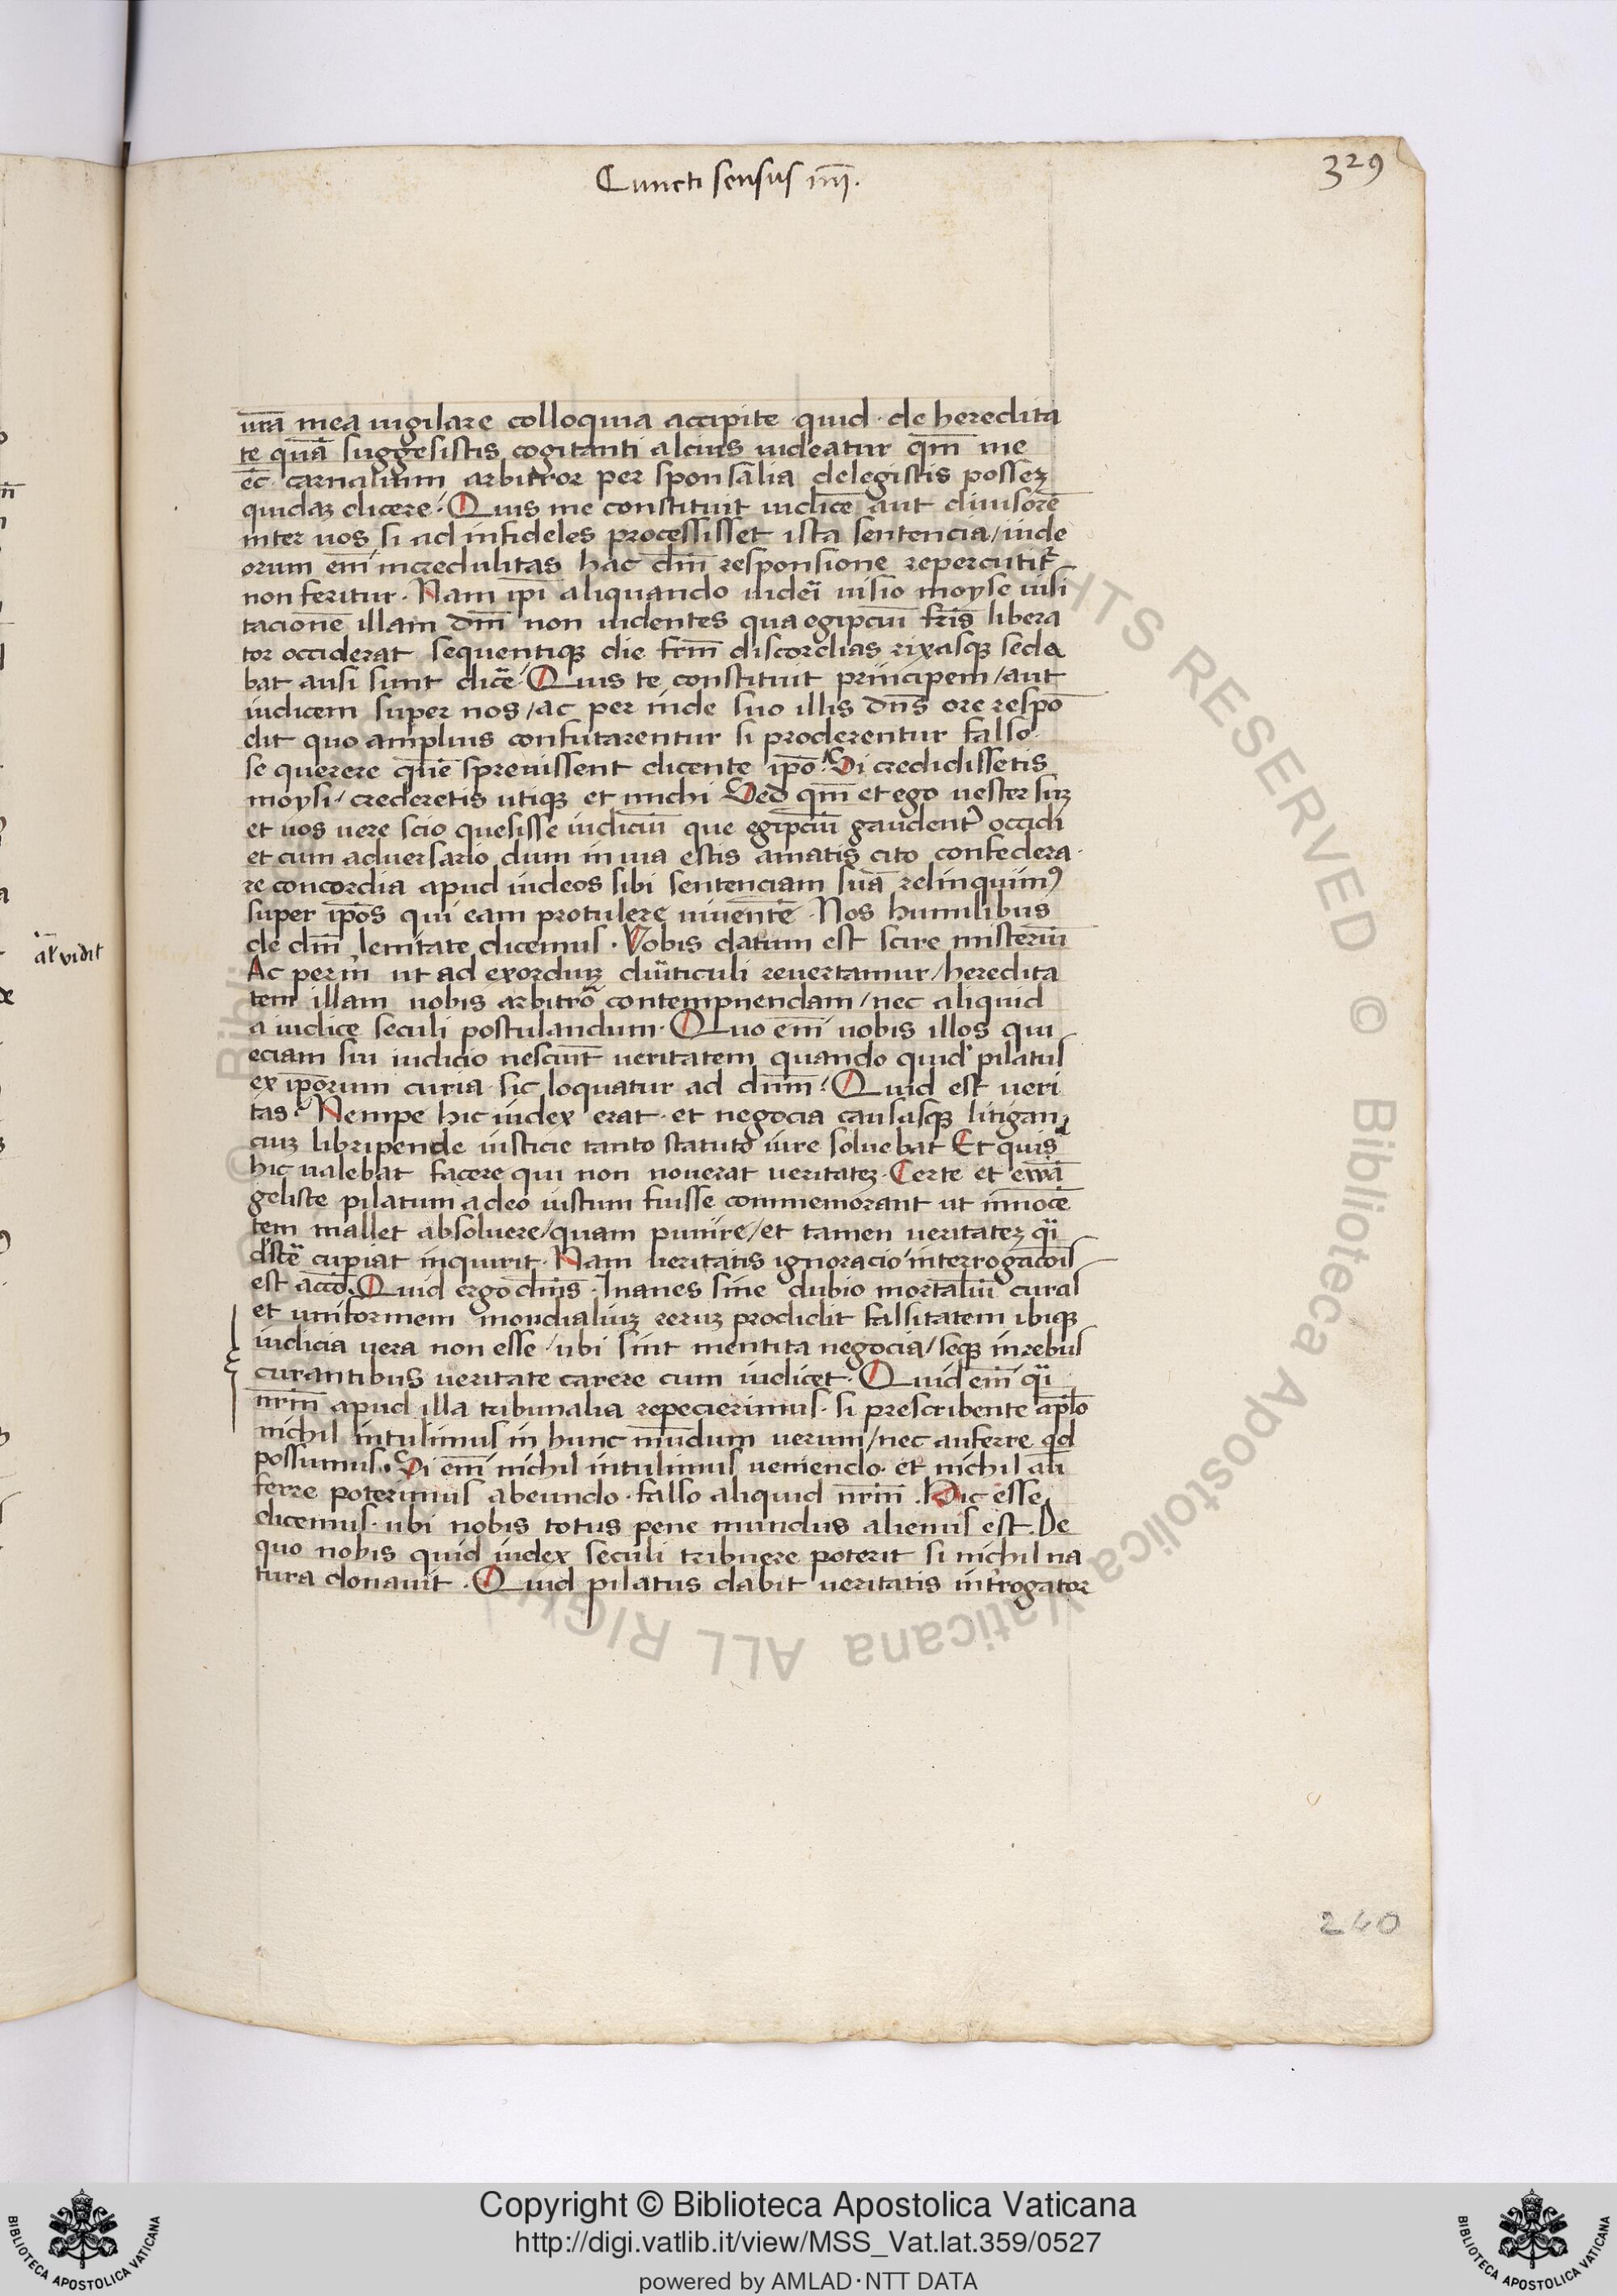 Cuncti sensus iiii.
329
ur̄a mea uigilare colloquia accipite quid · de heredita
te quā suggesistis cogitanti alcius uideatur qm̄ me
ec̄ carnalium arbitror per sponsalia delegistis possez
quidaz dicere · Quis me constituit iudicē aut diuisorē
inter uos si ad infideles processisset ista sentencia / iude
orum em̄ incredulitas hac dn̄i responsione repercutit᷑
non feritur · Nam ip̄i aliquando iudei uisio moyse uisi
tacionē illam dn̄i non uidentes qua egipciū fr̄is libera
tor occiderat sequentique die fr̄m discordias rixasque seda
bat ausi sunt dicē · Quis te constituit principem / aut
iudicem super nos / ac per inde suo illis dn̄s ore respō
dit quo amplius confutarentur si proderentur falso
se querere quē spreuissent dicente ip̄o · Si credidissetis
moysi / crederetis utique et michi Sed qm̄ et ego uester suz
et uos uere scio quesisse iudiciū que egipciū gaudent᷑ occidi
et cum aduersario dum in uia estis amatis cito confedera
re concordia apud iudeos sibi sentenciam suā relinquim⁹
super ip̄os qui eam protulere uiuentē · Nos humilibus
de dn̄i lenitate dicemus · Vobis datum est scire misteriū
al' vidit
Ac per in ut ad exorduz diuticuli reuertamur / heredita
tem illam uobis arbitrō contempnendam / nec aliquid
a iudice seculi postulandum · Quo em̄ uobis illos qui
eciam sui iudicio nesciūt ueritatem quando quid' pilatus
ex ip̄orum curia sic loquatur ad dnm̄ · Quid est ueri
tas · Nempe hic iudex erat · et negocia causasque litigan
ciuz libripende iusticie tanto statuto iure soluebat Et quis
hic ualebat facere qui non nouerat ueritatez · Certe et ewā
geliste pilatum adeo iustum fuisse commemorant ut innocē
tem mallet absoluere / quam punire / et tamen ueritatez
cupiat inquirit · Nam ueritatis ignoracio interrogacōis
est acc̄o · Quid ergo dn̄s · Inanes sine dubio mortaliū curas
et uniformem mondialiuz reruz prodidit falsitatem ibique
iudicia uera non esse / ubi sint mentita negocia / seque in rebus
curantibus ueritate carere cum iudicet · Quid em̄ q̄i
nr̄m apud illa tribunalia repecierimus · si prescribente apl̄o
nichil intulimus in hunc mūdum uerum / nec auferre qd
possumus · Si em̄ nichil intulimus ueniendo · et nichil au
ferre poterimus abeundo · falso aliquid nr̄m · Hic esse
dicemus · ubi nobis totus pene mundus alienus est · De
quo nobis quid iudex seculi tribuere poterit si nichil na
tura donauit · Quid pilatus dabit ueritatis int̄rogator
240
Copyright © Biblioteca Apostolica Vaticana
http://digi.vatlib.it/view/MSS_Vat.lat.359/0527
powered by AMLAD·NTT DATA